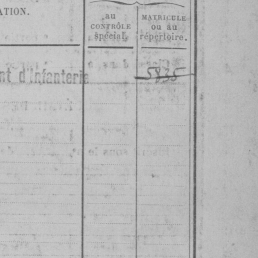 ATION.
au
CONTRÔLE
spécial.
MATRICULE
ou au
répertoire.
nt d'Infanterie
5835